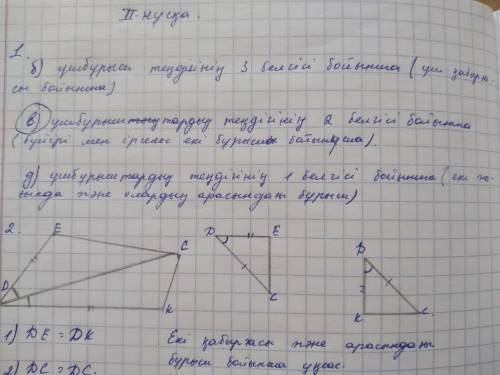 II-нұсқа.
1.
б) үшбұрыш теңдігінің 3 белгісі бойынша (үш қабырға-
сы бойынша)
в) үшбұрыштардың теңдігінің 2 белгісі бойынша
(бүйірі мен іргелес екі бұрышы бойынша).
д) үшбұрыштардың теңдігінің 1 белгісі бойынша (екі
және олардың арасындағы бұрыш)
2.
E
C
D
K
D E
C
D
K C
1) DE = DK
Екі қабырғасы және арасындағы
2) DC = DC.
бұрыш бойынша ұқсас.